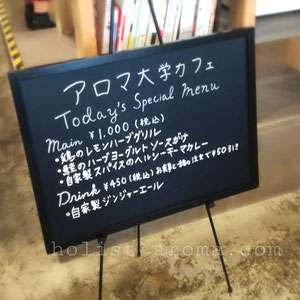 アロマ大学カフェ
Today's Special Menu
Main ¥1,000 (税込)
・鶏のレモンハーブグリル
・鮭のハーブヨーグルトソースがけ
・自家製スパイスのヘルシーキーマカレー
Drink ¥450 (税込) お食事と一緒の注文で¥50引き
・自家製ジンジャーエール
holist-aroma.com